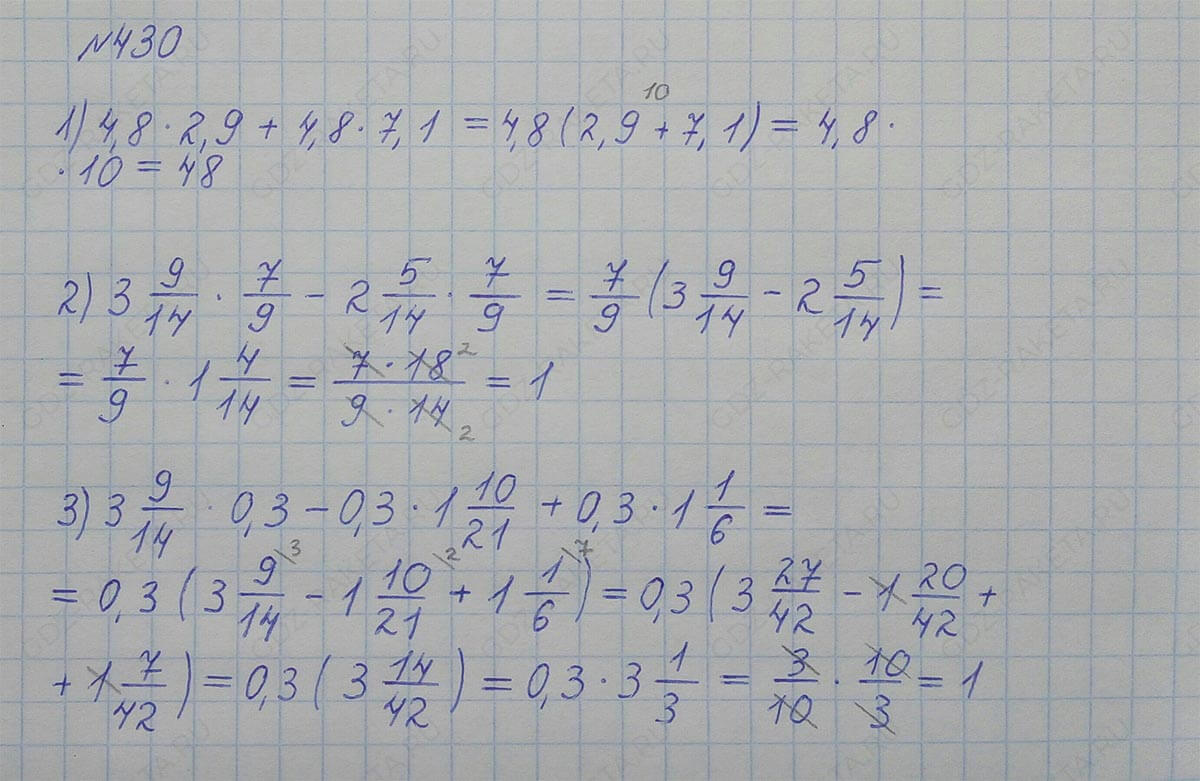 №430
1) 4,8 · 2,9 + 4,8 · 7,1 = 4,8 (2,9 + 7,1) = 4,8 ·
10
· 10 = 48
2) 3 9/14 · 7/9 - 2 5/14 · 7/9 = 7/9 (3 9/14 - 2 5/14) =
= 7/9 · 1 4/14 = 7 · 18 2 / 9 · 14 2 = 1
3) 3 9/14 · 0,3 - 0,3 · 1 10/21 + 0,3 · 1 1/6 =
= 0,3 (3 9/14 \3 - 1 10/21 \2 + 1 1/6 \7) = 0,3 (3 27/42 - 1 20/42 +
+ 1 7/42) = 0,3 (3 14/42) = 0,3 · 3 1/3 = 3/10 · 10/3 = 1
GDZ-RAKETA.RU